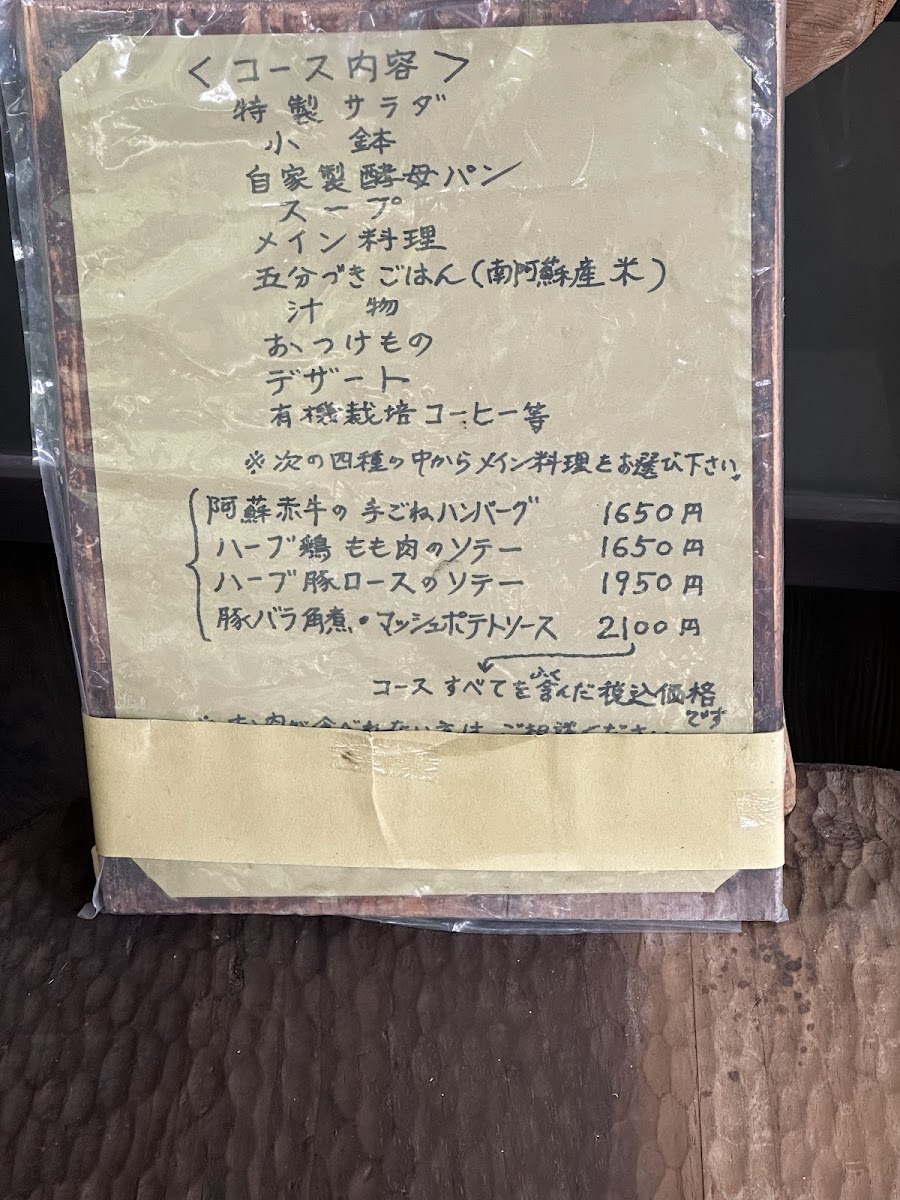 ＜コース内容＞
特製サラダ
小鉢
自家製酵母パン
スープ
メイン料理
五分づきごはん(南阿蘇産米)
汁物
おつけもの
デザート
有機栽培コーヒー等
※次の四種の中からメイン料理をお選び下さい。
阿蘇赤牛の手ごねハンバーグ 1650円
ハーブ鶏もも肉のソテー 1650円
ハーブ豚ロースのソテー 1950円
豚バラ角煮・マッシュポテトソース 2100円
ふく
コースすべてを含んだ税込価格
です
※お肉が食べれない方は、ご相談ください